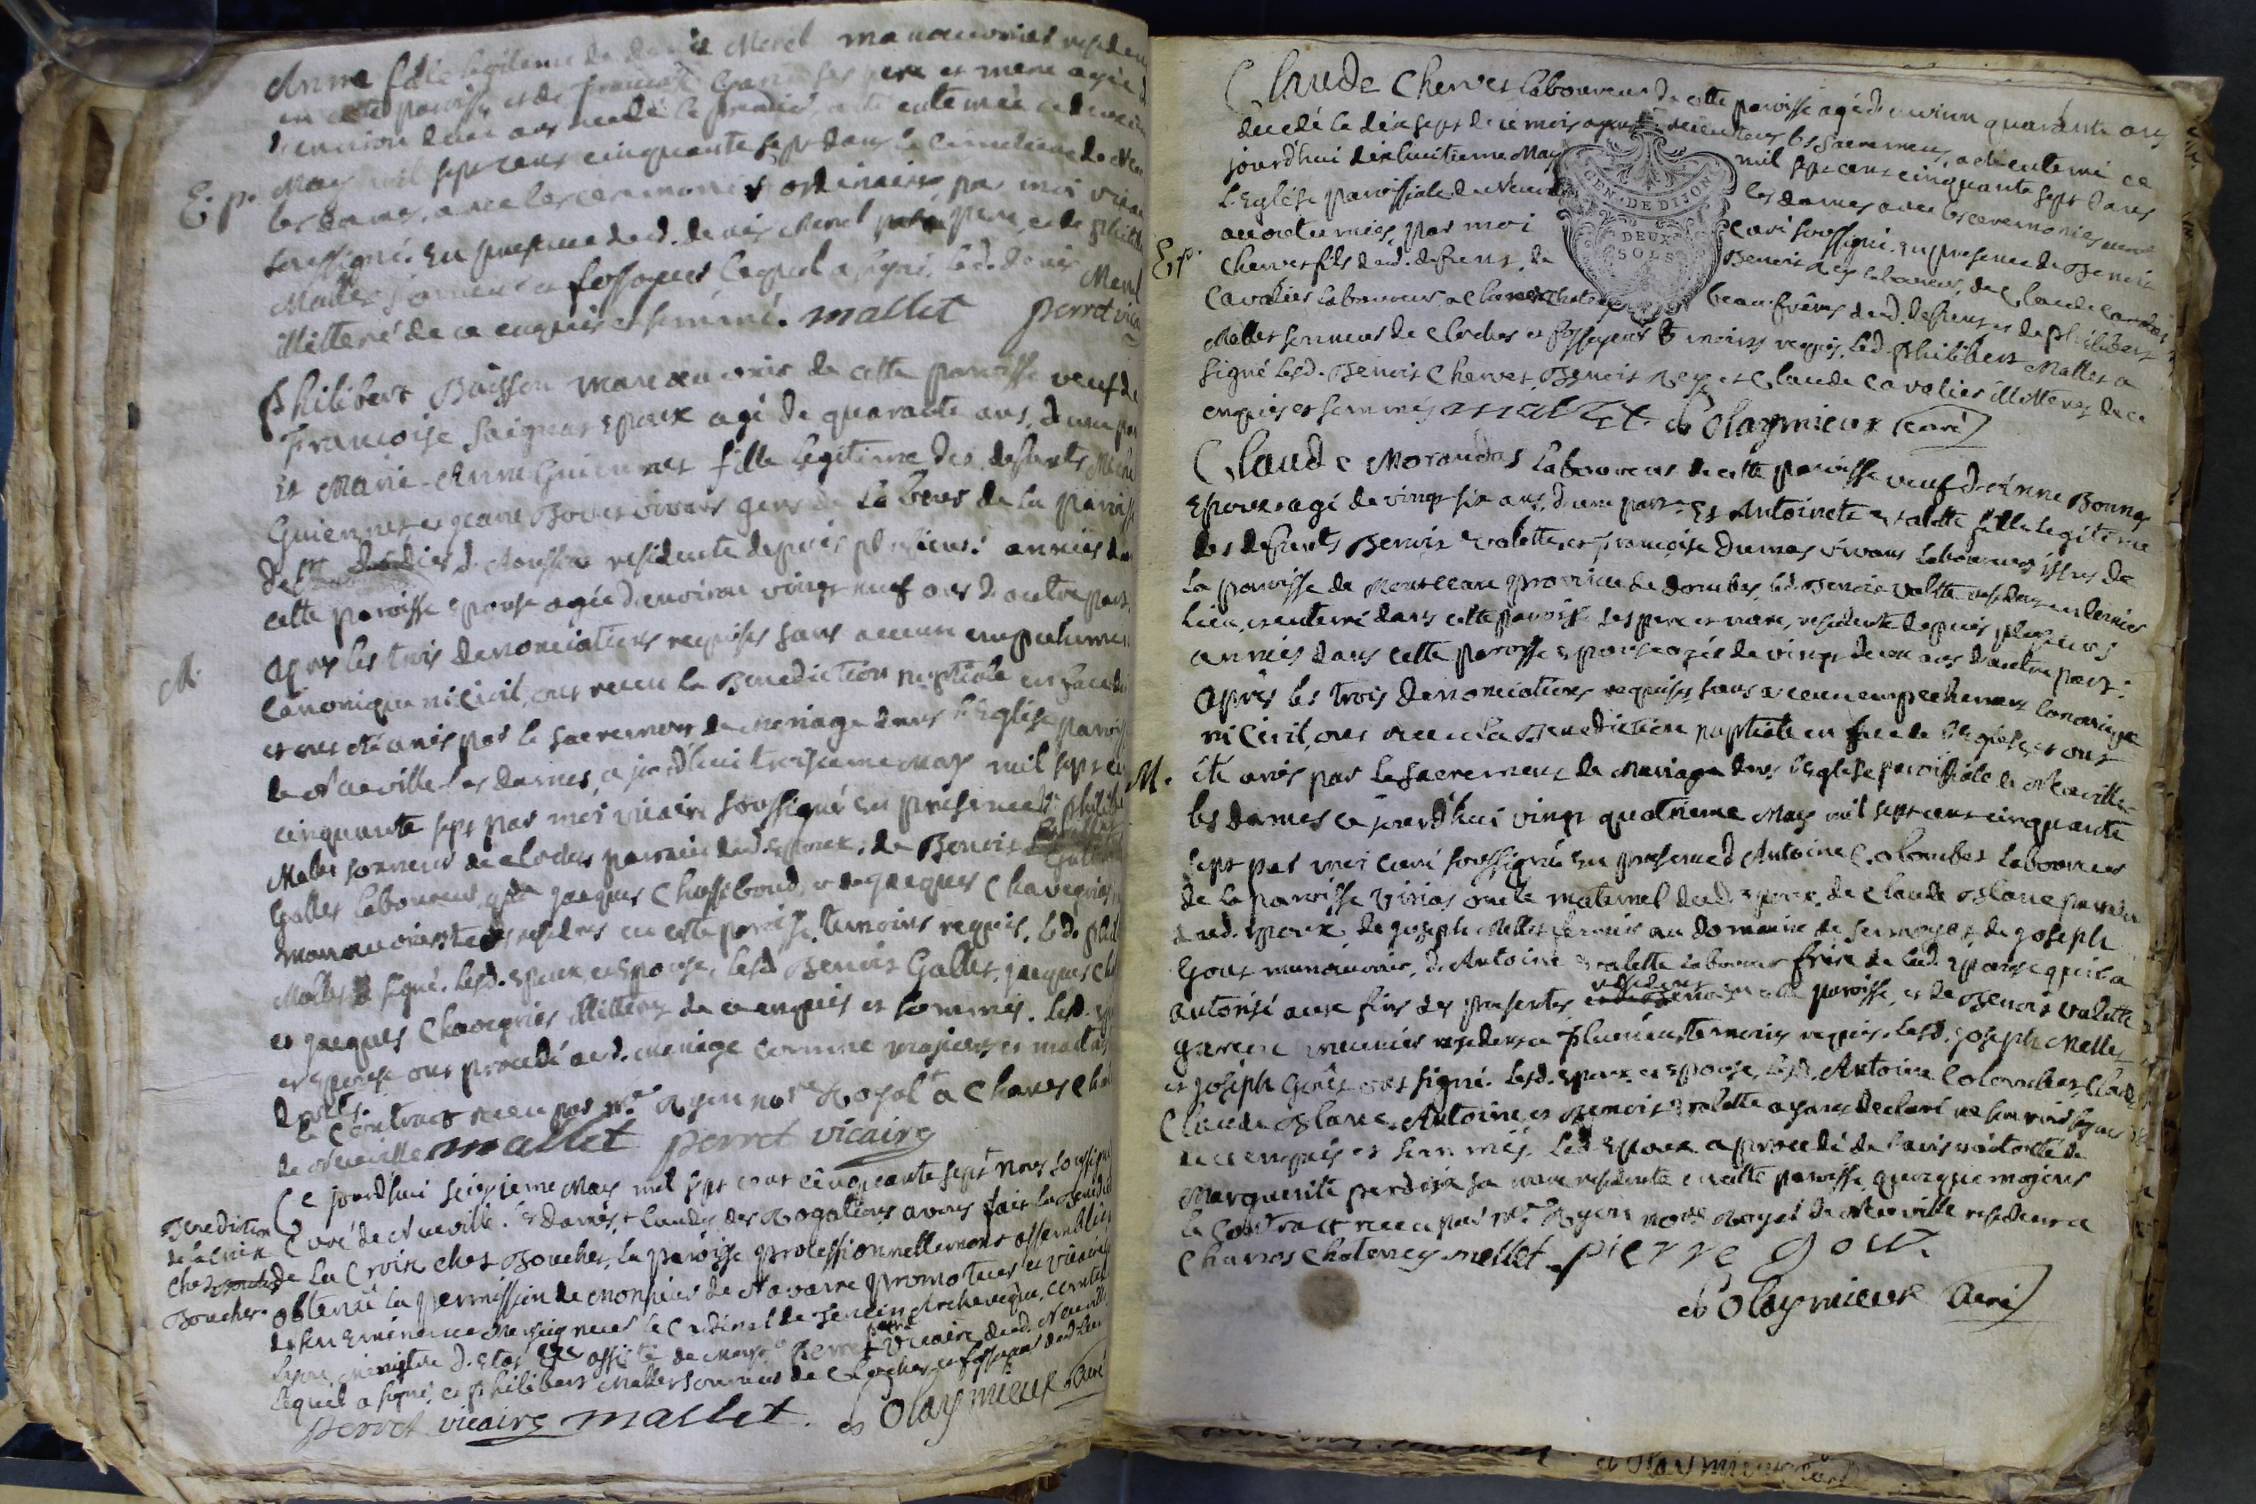 Anne fille legitime de denis Merel manouvrier residen
en cette paroisse et de francoise ses pere et mere agée d
d'environ deux ans decedé le premier a été enterrée ce deuxie
E. p. May mil sept cens cinquante sept dans le cimetiere de Neu
les dames, avec les ceremonies ordinaires par moi vicai
soussigné. En presence dud. denis Merel pere, et de philib
Mallet sonneur et fossoyeur lequel a signé, led. denis Merel
illitteré de ce enquis et sommé. mallet perret vica
Philibert Buisson manouvrier de cette paroisse veuf de
Francoise Saignas Epoux agé de quarante ans, d'une par
Et Marie-Anne Guiennet fille legitime des defunts Miche
Guiennet et jeane Bover vivans gens de labeur de la paroiss
de St didier d'Aoussia residente depuis plusieurs années dan
cette paroisse Epouse agée d'environ vingt neuf ans d'autre part.
M. Apres les trois denonciations requises sans aucun empechemen
Canonique ni Civil, ont receu la Benediction nuptiale en face de
et ont été unis par le Sacrement de Mariage dans l'Eglise paroiss
de Neuville les dames, a jourd'hui treiziéme May mil sept ce
cinquante sept par moi vicaire soussigné En présence de philibe
Mallet sonneur de cloches parrain dud. Epoux, de Benoit
Gallet laboureur, et de jacques Chossiboud, et de jacques Chavegries
manouvriers tous residens en cette paroisse. temoins requis. led. phil
Mallet a signé. lesd. Epoux et Epouse, lesd. Benoit Gallet, jacques ch
et jacques Chavegries illitterez de ce enquis et sommés. lesd. Ep
et Epouse ont procedé aud. mariage comme majeurs et maitres
de droits.
le Contract receu par Mre Ryon nore Royal a Chanes Cha
de Neuville mallet perret vicaire
Benediction Ce jourd'hui seizieme May mil sept cent cinquante sept Nous soussigné
de la Croix Curé de Neuville les dames, lundy des Rogations avons fait la Benedict
chez de la Croix chez Boucher, la paroisse processionnellement assemblée
Boucher. obtenu la permission de monsieur de Navarre promoteur et vicaire
de son Eminence Monseigneur le Cardinal de Tencin Archeveque, comte
Lyon, Ministre d'Etat &c assisté de Messre Perret vicaire dud. Neuville
lequel a signé, et philibert Mallet sonneur de Cloches et fossoyeur dud. lieu
perret vicaire mallet. de Polaymieux Curé
Claude Chervet laboureur de cette paroisse agé d'environ quarante ans
decedé le dixsept de ce mois apres receu tous les Sacremens, a été enterré ce
jourd'hui dixhuitieme May mil sept cens cinquante sept dans
l'Eglise paroissiale de Neuville les dames avec les ceremonies
accoutumées, par moi Curé soussigné. En presence de Benoit
E. p. Chervet fils dud. defunt, de Benoit Rey laboureur, de Claude
Cavalier laboureur a Chanes Chatenay beaufrères dud. defunt et de philibert
Mallet sonneur de cloches et fossoyeur temoins requis, led. philibert Mallet a
signé lesd. Benoit Chervet, Benoit Rey, et Claude Cavalier illitterez de ce
enquis et sommés mallet. de Polaymieux Curé
GEN. DE DIJON
DEUX
SOLS
Claude Morandas laboureur de cette paroisse veuf d'Anne Bonnes
Epoux agé de vingt six ans, d'une part. Et Antoinete Valette fille legitime
des defunts Benoit Valette, et francoise Dumas vivans laboureurs issus de
la paroisse de Montceau province de dombes, led. Benoit Valette residant en dernier
lieu, et enterré dans cette paroisse ses pere et mere, residente depuis plusieurs
années dans cette paroisse Epouse agée de vingt deux ans d'autre part.
Après les trois denonciations requises sans aucun empechement Canonique
ni Civil, ont receu la Benediction nuptiale en face de l'Eglise, et ont
M. été unis par le Sacrement de Mariage dans l'Eglise paroissiale de Neuville
les dames ce jourd'hui vingt quatrieme May mil sept cent cinquante
sept par moi Curé soussigné En presence d'Antoine Colombet laboureur
de la paroisse Virias oncle maternel dud. Epoux, de Claude Blanc parrain
dud. Epoux, de joseph Mellet fermier au domaine de Sermoyes, de joseph
Gout manouvrier, d'Antoine Valette laboureur frere de lad. Epouse qui l'a
autorisé aux fins des presentes, residens en cette paroisse, et de Benoit Valette
garcon meunier residens a temoins requis. lesd. joseph Mellet
et joseph Gout ont signé. lesd. Epoux et Epouse, lesd. Antoine Colombet,
Claude Blanc. Antoine, et Benoit Valette ayant declaré ne
de ce enquis et sommés. led. Epoux a procedé de l'avis
Marguerite sa mere residente en cette paroisse, quoique majeur
le Contract receu par Mre Ryon nore Royal de Neuville residant a
Chanes Chatenay mellet. pierre gout
de Polaymieux Curé